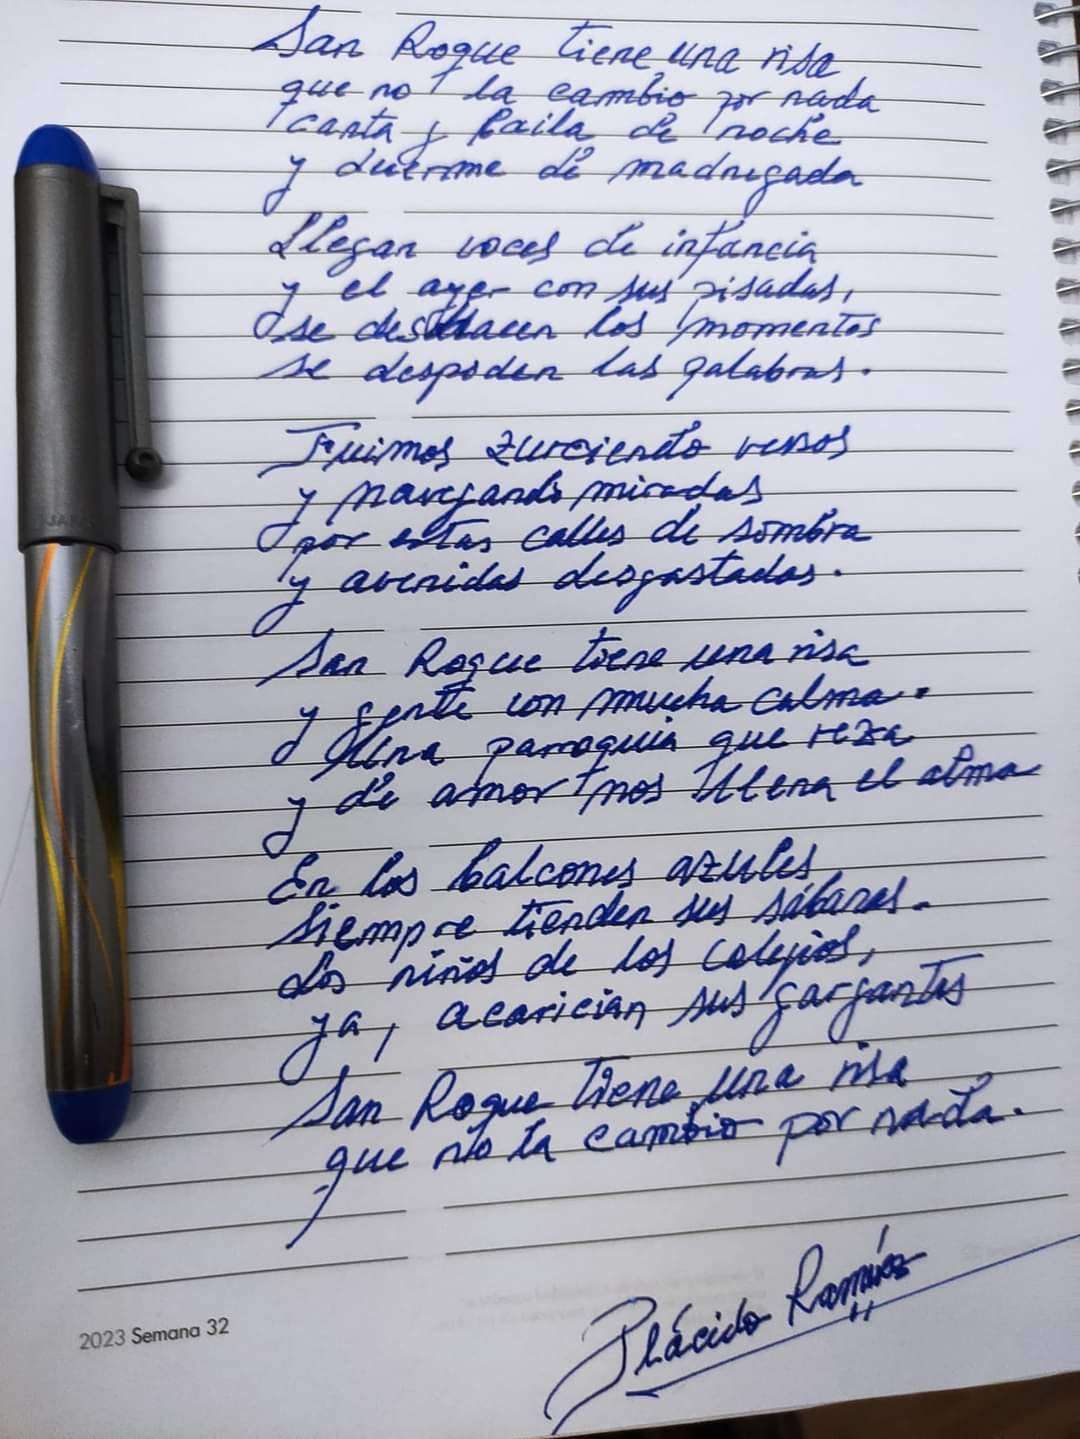 San Roque tiene una risa
que no la cambio por nada
canta y baila de noche
y duerme de madrugada
Llegan voces de infancia
y el ayer con sus pisadas,
se deshacen los momentos
se despiden las palabras.
Fuimos zurciendo versos
y navegando miradas
por estas calles de sombra
y avenidas desgastadas.
San Roque tiene una risa
y gente con mucha calma.
Una parroquia que reza
y de amor nos llena el alma
En los balcones azules
siempre tienden sus sábanas.
Los niños de los colegios,
ya, acarician sus gargantas
San Roque tiene una risa
que no la cambio por nada.
Plácido Ramírez
2023 Semana 32